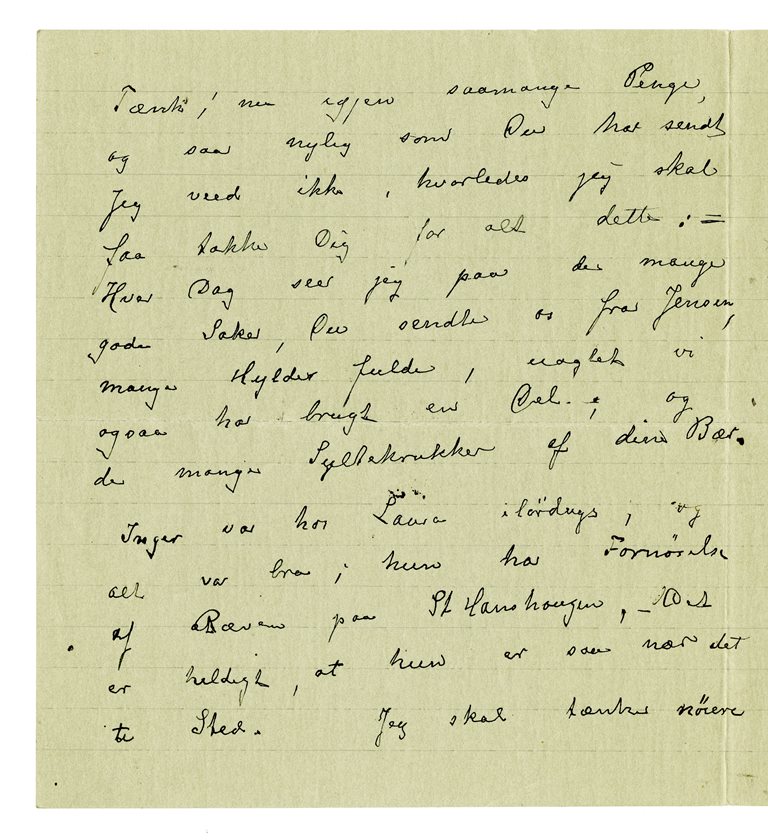 Tænk! nu igjen saamange Penge,
og saa nylig som Du har sendt
Jeg veed ikke, hvorledes jeg skal
faa takke Dig for alt dette: =
Hver Dag seer jeg paa de mange
gode Saker, Du sendte os fra Jensen,
mange Hylder fulde, uagtet vi
ogsaa har brugt en Del. ; og
de mange Syltekrukker af dine Bær.
Inger var hos Laura ilørdags, og
alt var bra; hun har Fornøielse
af Bæven paa St Hanshaugen, _ Det
er heldigt, at hun er saa nær det
te Sted. Jeg skal tænke nöiere